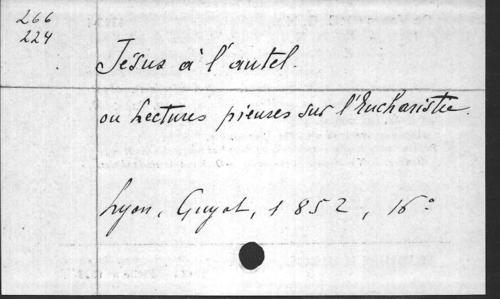 266
224
Jésus à l'autel.
ou Lectures pieuses sur l'Eucharistie.
Lyon, Guyot, 1852, 16°